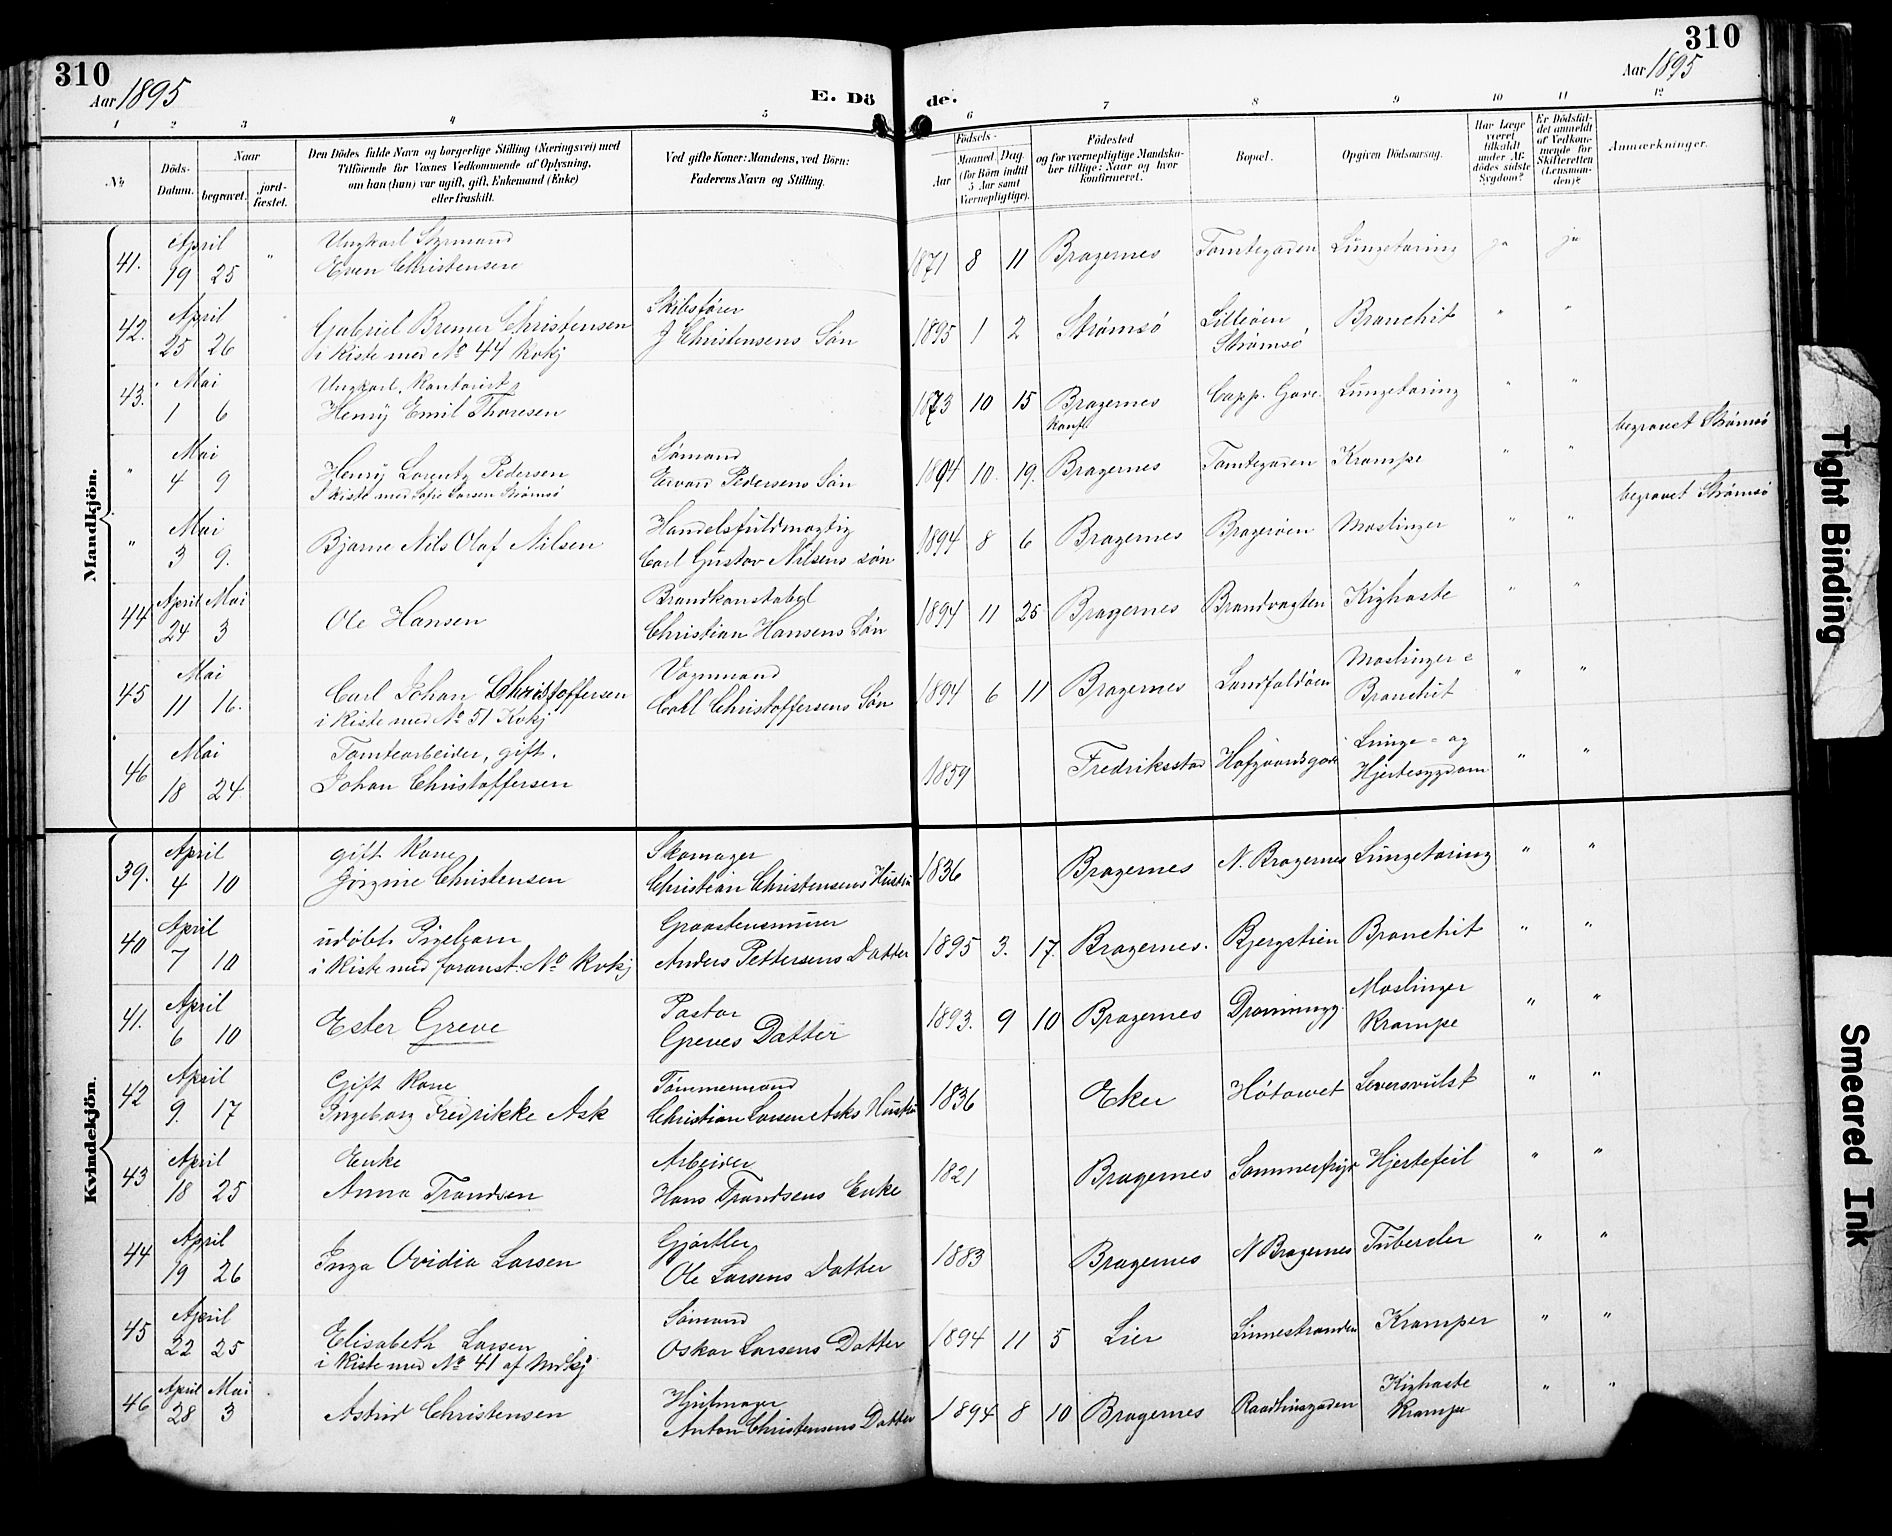 310
Aar 1895
E. Dö
de.
310
Aar 1895
1 2 3 4 5 6 7 8 9 10 11 12
No
Döds-Datum.
Naar
begravet.
jord-fæstet.
Den Dödes fulde Navn og borgerlige Stilling (Næringsvei) med
Tilföiende for Voxnes Vedkommende af Oplysning,
om han (hun) var ugift, gift, Enkemand (Enke)
eller fraskilt.
Ved gifte Koner: Mandens, ved Börn:
Faderens Navn og Stilling.
Födsels-
Aar
Maaned. Dag.
(for Börn indtil
5 Aar samt
Værnepligtige).
Födested
og for værnepligtige Mandska-
ber tillige: Naar og hvor
konfirmeret.
Bopæl.
Opgiven Dödsaarsag.
Har Læge
været
tilkaldt
under Af-
dödes sidste
Sygdom?
Er Dödsfal-
det anmeldt
af Vedkom-
mende for
Skifteretten
(Lensman-
den)?
Anmærkninger.
Mandkjön.
41. April 19 25 "
Ungkarl Styrmand
Even Christensen
1871 8 11 Bragernes Tomtegaden Lungetæring ja ja
42. April 25 26
Gabriel Bremer Christensen
i Kiste med No 44 Kvkj
Skibsfører
J Christensens Søn
1895 1 2 Strømsø Lilleøen Strømsø Bronchit " "
43. Mai 1 6
Ungkarl, Kontorist,
Henrÿ Emil Thoresen
1873 10 15 Bragernes Konf. Capp. Gave. Lungetæring " "
" Mai 4 9
Henrÿ Lorentz Pedersen
I Kiste med Sofie Larsen Strømsø
Sømand
Edvard Pedersens Søn
1894 10. 19. Bragernes Tomtegaden Krampe " " begravet Strømsø
" Mai 3 9.
Bjarne Nils Olaf Nilsen
Handelsfuldmægtig
Carl Gustav Nilsens søn
1894 8 6 Bragernes Bragerøen Meslinger " " begravet Strømsø
44 April 24 Mai 3
Ole Hansen
Brandkonstabel
Christian Hansens Søn
1894 11 25 Bragernes Brandvagten Kighoste " "
45 Mai 11 16.
Carl Johan Christoffersen
i Kiste med No 51 Kvkj
Vognmand
Carl Christoffersens Søn
1894 6 11 Bragernes Landfaldøen Meslinger = Bronchit " "
46 Mai 18 24.
Tomtearbeider, gift.
Johan Christoffersen
1859 Fredriksstad Hofgaardsgade Lunge = og Hjertesygdom " "
Kvindekjön.
39. April 4 10
gift Kone
Jörgine Christensen
Skomager
Christian Christensens Hustru
1836 Bragernes N. Bragernes Lungetæring " "
40 April 7 10
udöbt Pigebarn
i Kiste med foranst. No Kvkj
Graastensmurer
Anders Pettersens Datter
1895 3. 17. Bragernes. Bjergstien Bronchit " "
41. April 6 10
Ester Greve
Pastor
Greves Datter
1893. 9 10 Bragernes Dronningg. Meslinger Krampe " "
42 April 9. 17
Gift Kone
Ingeborg Fredrikke Ask
Tømmermand
Christian Larsen Asks Hustru
1836 Eker Høtomet Leversvulst " "
43 April 18 25
Enke
Anna Trandsen
Arbeider
Hans Trandsens Enke
1821 Bragernes Sommerfryd Hjertefeil " "
44 April 19 26
Inga Ovidia Larsen
Gjørtler
Ole Larsens Datter
1883 Bragernes N Bragernes Tuberder " "
45 April 22 25
Elisabeth Larsen
i Kiste med No 41 af Mdkj
Sømand
Oskar Larsens Datter
1894 11 5 Lier Linnestranden Kramper " "
46 April 28 Mai 3
Astrid Christensen
Hjulmager
Anton Christensens Datter
1894 8 10 Bragernes Raadhusgaden Kighoste Krampe " "
Tight Binding
Smeared Ink